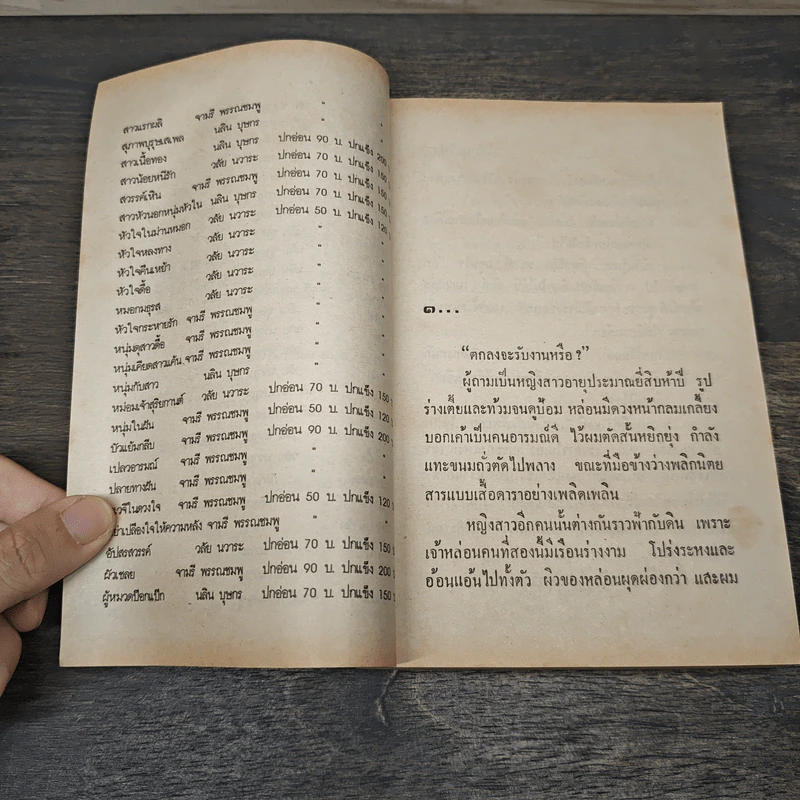 สาวแรกผลิ จามรี พรรณชมพู "
สุภาพบุรุษเสเพล นลิน บุษกร "
สาวเนื้อทอง นลิน บุษกร ปกอ่อน 90 บ. ปกแข็ง 200
สาวน้อยหนีรัก วลัย นวาระ ปกอ่อน 70 บ. ปกแข็ง 150
สวรรค์เหิน จามรี พรรณชมพู ปกอ่อน 70 บ. ปกแข็ง 150
สาวหัวนอกหนุ่มหัวใน นลิน บุษกร ปกอ่อน 70 บ. ปกแข็ง 150
หัวใจในม่านหมอก วลัย นวาระ ปกอ่อน 50 บ. ปกแข็ง 120
หัวใจหลงทาง วลัย นวาระ "
หัวใจคืนเหย้า วลัย นวาระ "
หัวใจดื้อ วลัย นวาระ "
หมอกมธุรส วลัย นวาระ "
หัวใจกระหายรัก จามรี พรรณชมพู "
หนุ่มดุสาวดื้อ จามรี พรรณชมพู "
หนุ่มเคียดสาวแค้น จามรี พรรณชมพู "
หนุ่มกับสาว นลิน บุษกร "
หม่อมเจ้าสุริยกานต์ วลัย นวาระ ปกอ่อน 70 บ. ปกแข็ง 150
หนุ่มในฝัน จามรี พรรณชมพู ปกอ่อน 50 บ. ปกแข็ง 120
บัวแย้มกลีบ จามรี พรรณชมพู ปกอ่อน 90 บ. ปกแข็ง 200
เปลวอารมณ์ จามรี พรรณชมพู "
ปลายทางฝัน จามรี พรรณชมพู "
ในดวงใจ จามรี พรรณชมพู ปกอ่อน 50 บ. ปกแข็ง 120
เปลืองใจให้ความหลัง จามรี พรรณชมพู "
อัปสรสวรรค์ วลัย นวาระ ปกอ่อน 70 บ. ปกแข็ง 150
ผัวเชลย จามรี พรรณชมพู ปกอ่อน 90 บ. ปกแข็ง 200
ผู้หมวดป๊อกแป๊ก นลิน บุษกร ปกอ่อน 70 บ. ปกแข็ง 150
๑...
“ตกลงจะรับงานหรือ?”
ผู้ถามเป็นหญิงสาวอายุประมาณยี่สิบห้าปี รูป
ร่างเตี้ยและท้วมจนดูป้อม หล่อนมีดวงหน้ากลมเกลี้ยง
บอกเค้าเป็นคนอารมณ์ดี ไว้ผมตัดสั้นหยิกยุ่ง กำลัง
แทะขนมถั่วตัดไปพลาง ขณะที่มือข้างว่างพลิกนิตย
สารแบบเสื้อดาราอย่างเพลิดเพลิน
หญิงสาวอีกคนนั้นต่างกันราวฟ้ากับดิน เพราะ
เจ้าหล่อนคนที่สองนี้มีเรือนร่างงาม โปร่งระหงและ
อ้อนแอ้นไปทั้งตัว ผิวของหล่อนผุดผ่องกว่า และผม